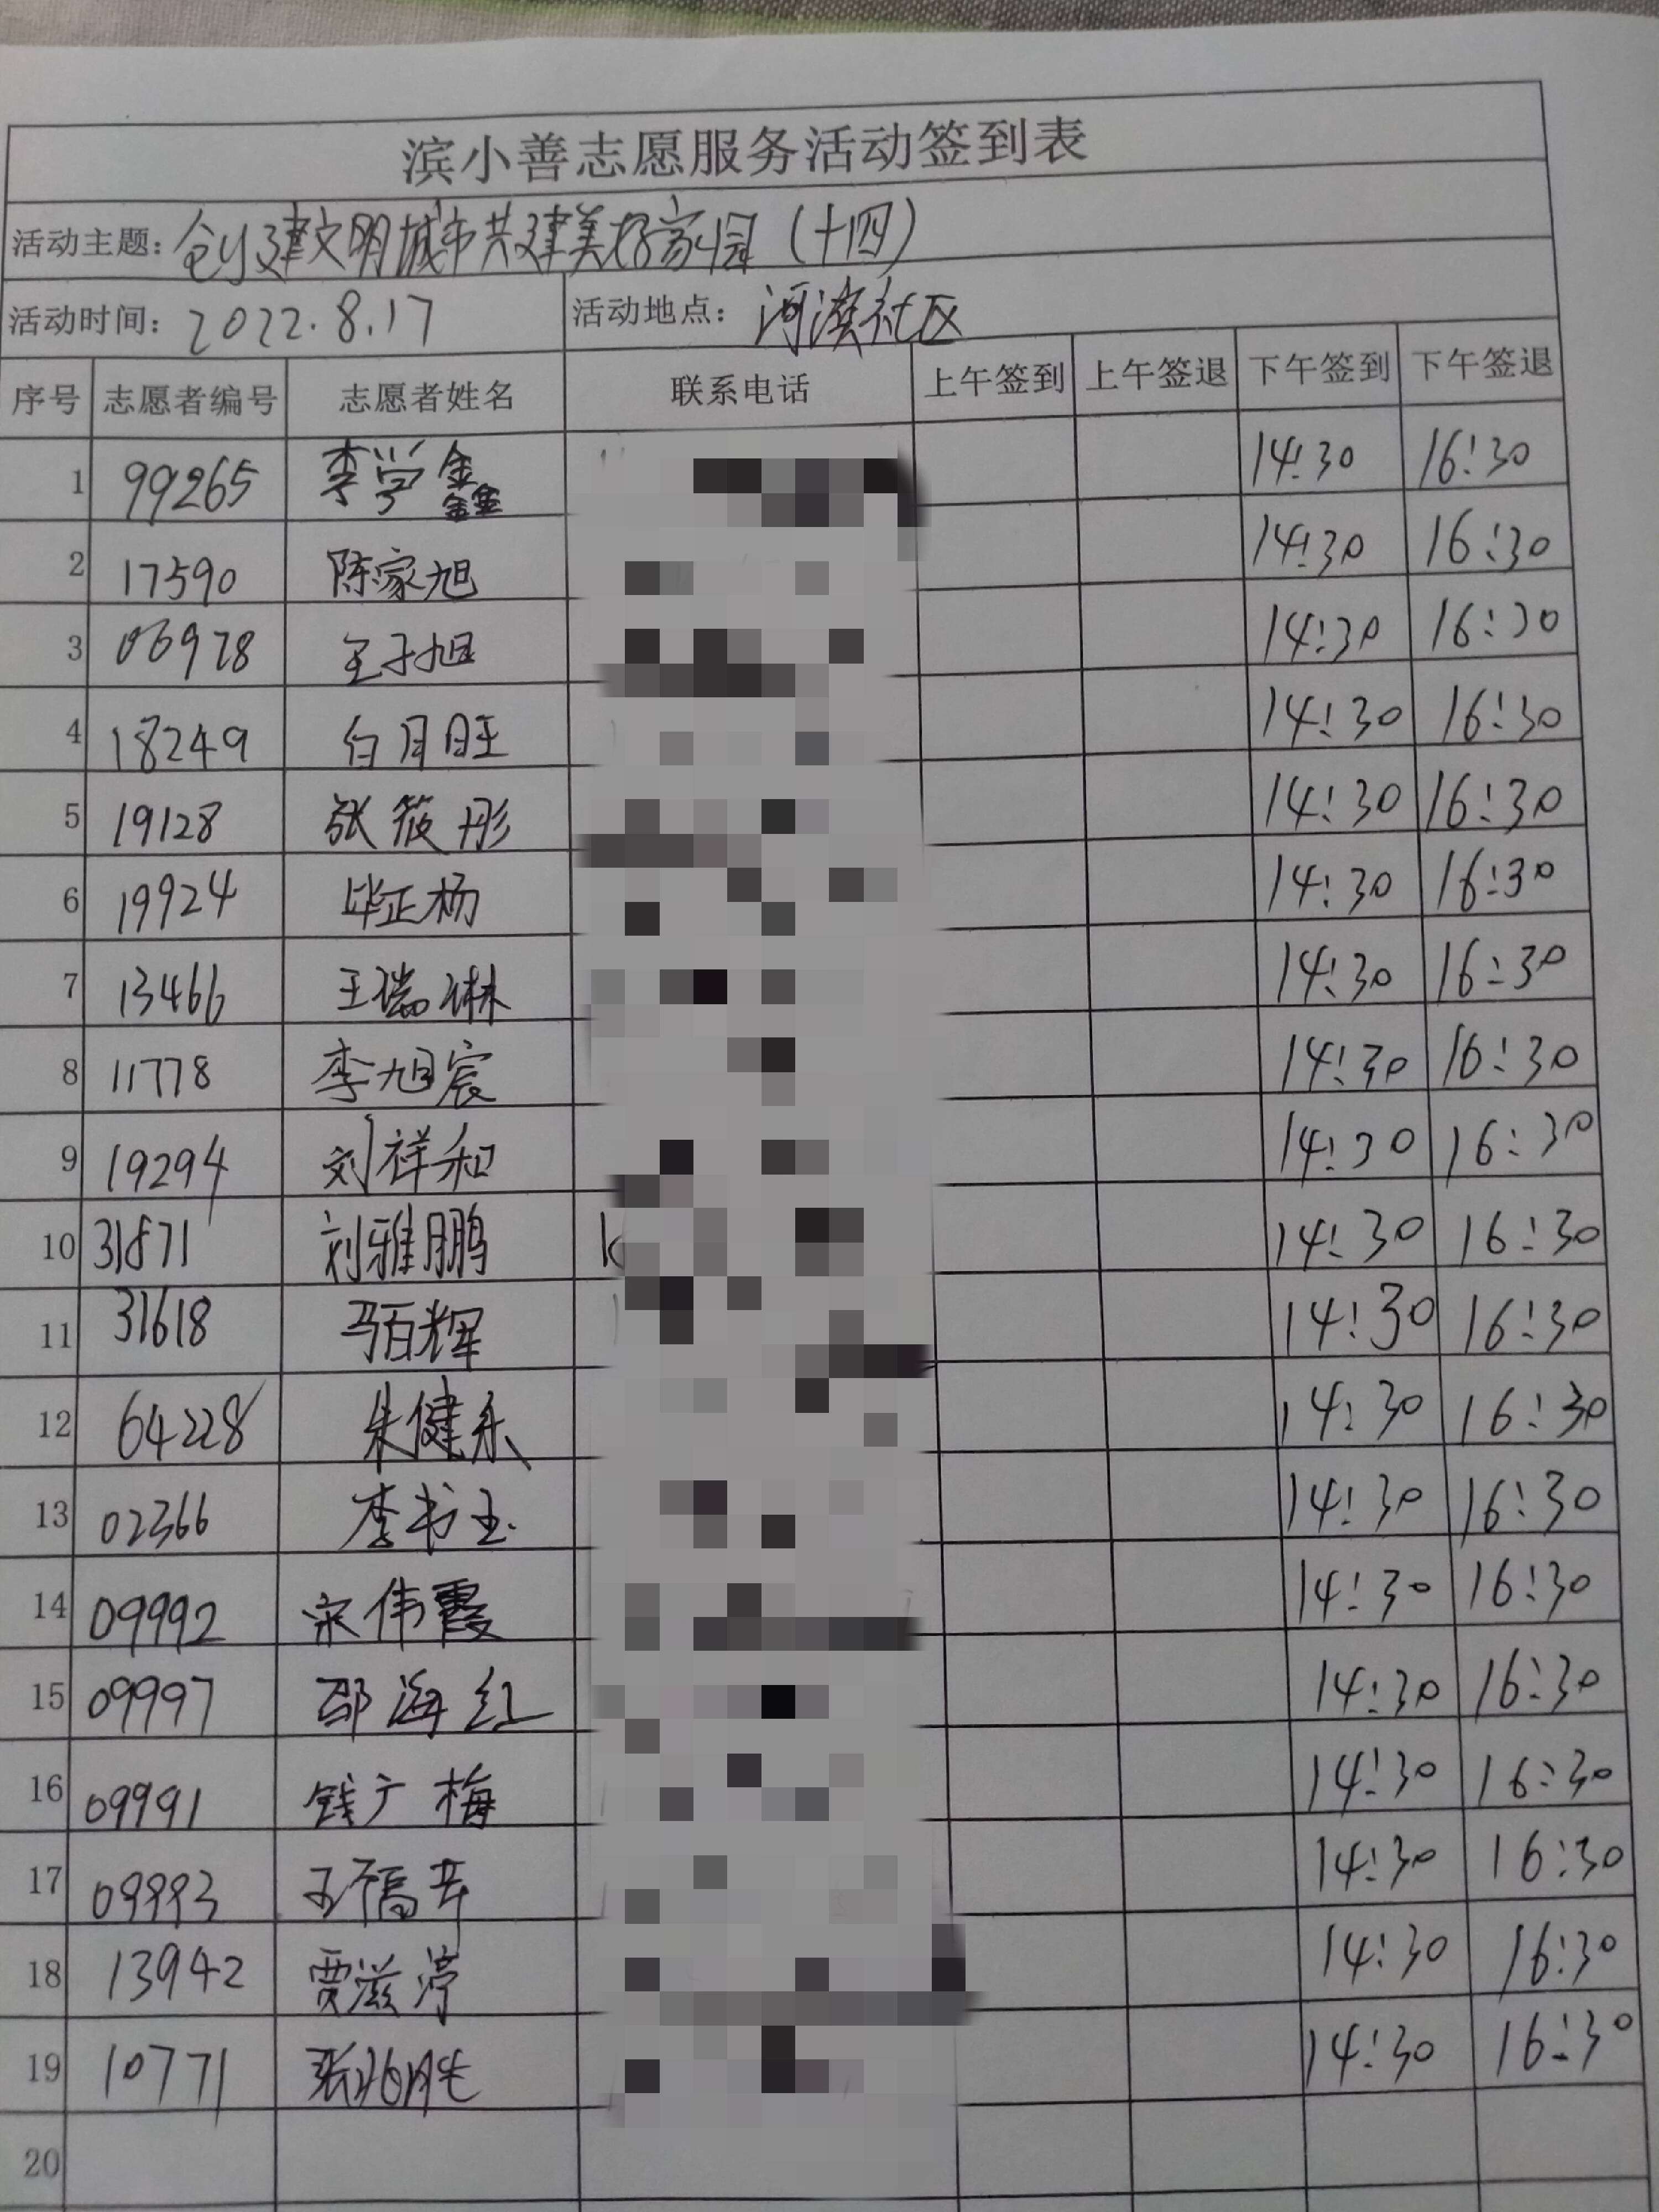 滨小善志愿服务活动签到表
活动主题：创建文明城市共建美好家园（十四）
活动时间：2022.8.17 活动地点：河滨社区
序号 志愿者编号 志愿者姓名 联系电话 上午签到 上午签退 下午签到 下午签退
1 99265 李学鑫 14:30 16:30
2 17590 陈家旭 14:30 16:30
3 06978 王子旭 14:30 16:30
4 18249 白月旺 14:30 16:30
5 19128 张筱彤 14:30 16:30
6 19924 毕正杨 14:30 16:30
7 13466 王瑞琳 14:30 16:30
8 11778 李旭宸 14:30 16:30
9 19294 刘祥和 14:30 16:30
10 31871 刘雅鹏 14:30 16:30
11 31618 马百辉 14:30 16:30
12 64228 朱健乐 14:30 16:30
13 02366 李书玉 14:30 16:30
14 09992 宋伟霞 14:30 16:30
15 09997 邵海红 14:30 16:30
16 09991 钱广梅 14:30 16:30
17 09993 14:30 16:30
18 13942 贾滋渟 14:30 16:30
19 10771 14:30 16:30
20